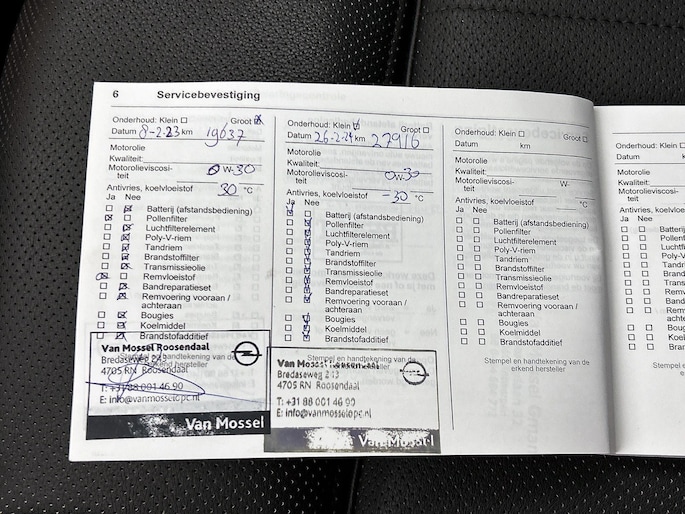 6 Servicebevestiging
Onderhoud: Klein Groot
Datum 8-2-23 km 19637
Motorolie
Kwaliteit:
Motorolieviscosi- 0W-30
teit
Antivries, koelvloeistof 30 °C
Ja Nee
Batterij (afstandsbediening)
Pollenfilter
Luchtfilterelement
Poly-V-riem
Tandriem
Brandstoffilter
Transmissieolie
Remvloeistof
Bandreparatieset
Remvoering vooraan /
achteraan
Bougies
Koelmiddel
Brandstofadditief
Van Mossel Roosendaal
Bredaseweg 243
4705 RN Roosendaal
T: +31 88 001 46 90
E: info@vanmosselopc.nl
Van Mossel
Onderhoud: Klein Groot
Datum 26-2-24 km 27916
Motorolie
Kwaliteit:
Motorolieviscosi- 0W-30
teit
Antivries, koelvloeistof -30 °C
Ja Nee
Batterij (afstandsbediening)
Pollenfilter
Luchtfilterelement
Poly-V-riem
Tandriem
Brandstoffilter
Transmissieolie
Remvloeistof
Bandreparatieset
Remvoering vooraan /
achteraan
Bougies
Koelmiddel
Brandstofadditief
Stempel en handtekening van de
erkend hersteller
Van Mossel
Bredaseweg 243
4705 RN Roosendaal
T: +31 88 001 46 90
E: info@vanmosselopc.nl
Van Mossel
Onderhoud: Klein Groot
Datum km
Motorolie
Kwaliteit:
Motorolieviscosi- W-
teit
Antivries, koelvloeistof °C
Ja Nee
Batterij (afstandsbediening)
Pollenfilter
Luchtfilterelement
Poly-V-riem
Tandriem
Brandstoffilter
Transmissieolie
Remvloeistof
Bandreparatieset
Remvoering vooraan /
achteraan
Bougies
Koelmiddel
Brandstofadditief
Stempel en handtekening van de
erkend hersteller
Onderhoud: Klein
Datum km
Motorolie
Kwaliteit:
Motorolieviscosi-
teit
Antivries, koelvloeis
Ja Nee
Batterij
Pollenf
Luchtfi
Poly-V
Tandri
Brand
Trans
Remv
Band
Rem
acht
Bou
Koel
Bran